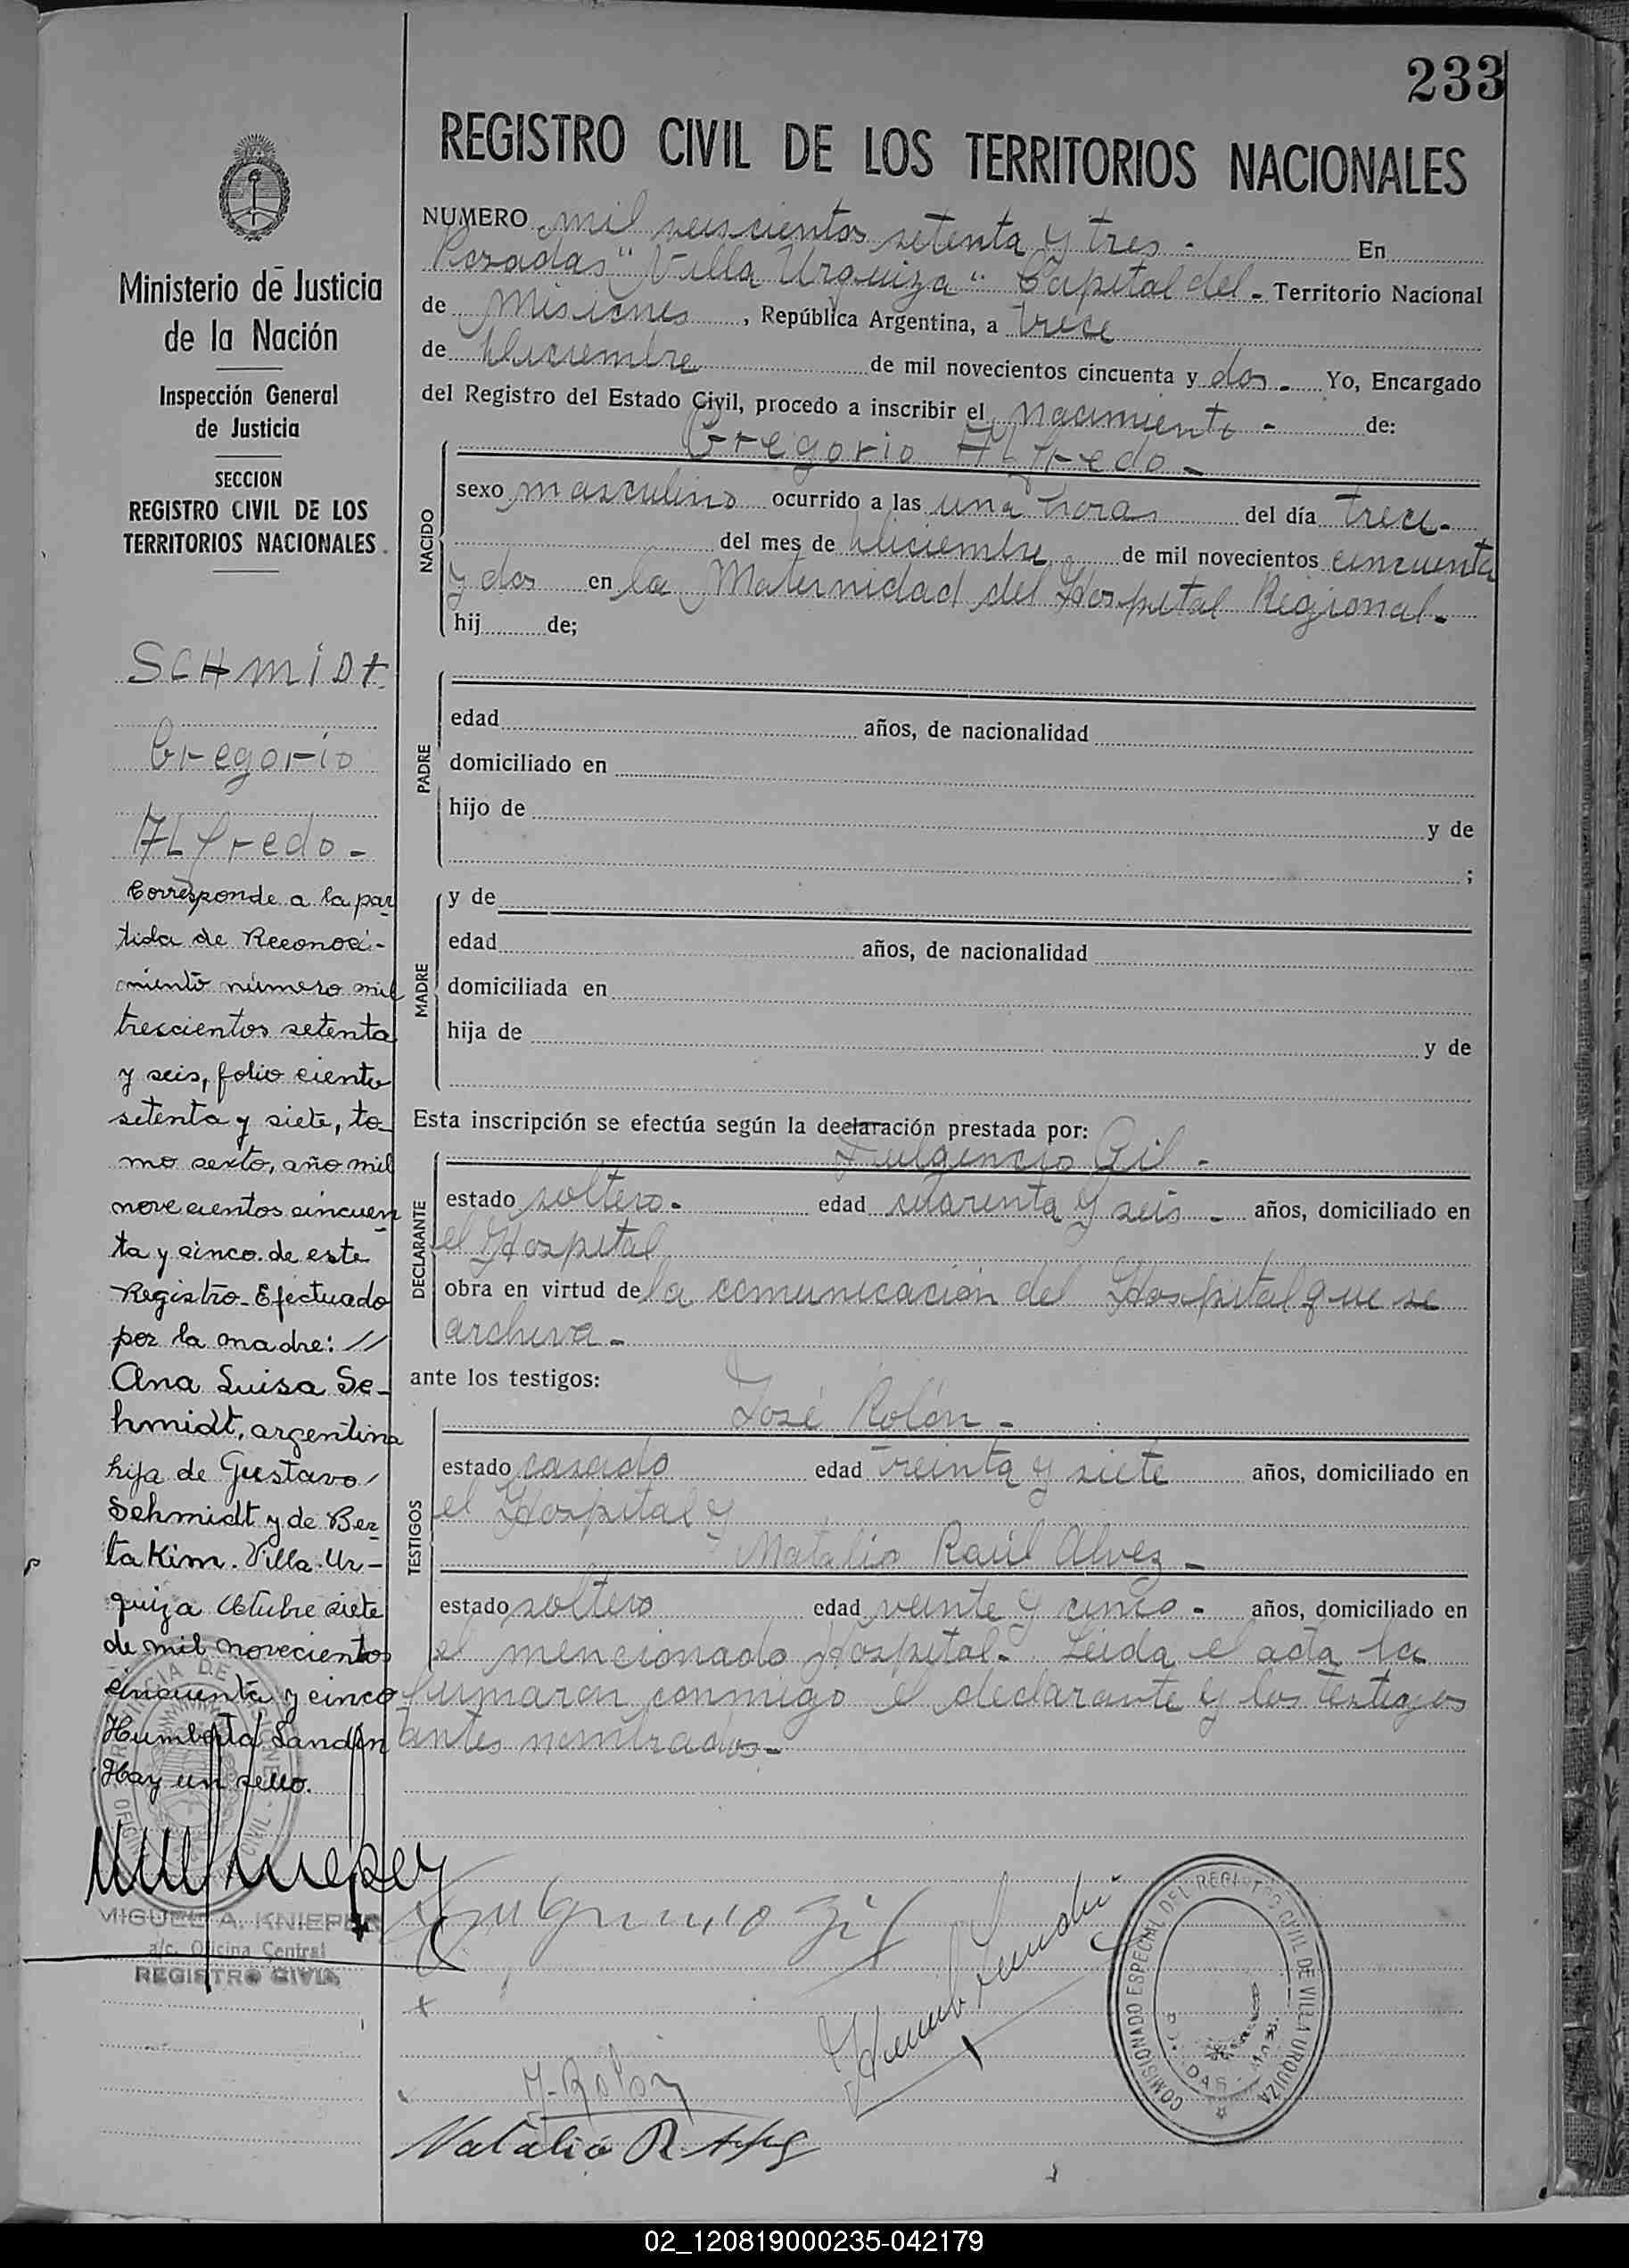 233
REGISTRO CIVIL DE LOS TERRITORIOS NACIONALES
NUMERO mil seiscientos setenta y tres - En
Posadas "Villa Urquiza" Capital del - Territorio Nacional
de Misiones, República Argentina, a trece
de Diciembre de mil novecientos cincuenta y dos - Yo, Encargado
del Registro del Estado Civil, procedo a inscribir el Nacimiento - de:
Gregorio ALfredo -
NACIDO
sexo masculino ocurrido a las una horas del día trece -
del mes de Diciembre de mil novecientos cincuenta
y dos en la Maternidad del Hospital Regional -
hij de;
PADRE
edad años, de nacionalidad
domiciliado en
hijo de y de
;
MADRE
y de
edad años, de nacionalidad
domiciliada en
hija de y de
Esta inscripción se efectúa según la declaración prestada por:
Fulgencio Gil -
DECLARANTE
estado soltero - edad cuarenta y seis - años, domiciliado en
el Hospital
obra en virtud de la comunicación del Hospital que se
archiva -
ante los testigos:
José Rolón -
TESTIGOS
estado casado edad treinta y siete años, domiciliado en
el Hospital y
Natalio Raúl Alvez -
estado soltero edad veinte y cinco - años, domiciliado en
el mencionado Hospital - Leida el acta la
firmaron conmigo el declarante y los testigos
antes nombrados -
Fulgencio Gil
J. Rolón
Natalio R.
COMISIONADO ESPECIAL DEL REGISTRO CIVIL DE VILLA URQUIZA
Ministerio de Justicia
de la Nación
Inspección General
de Justicia
SECCION
REGISTRO CIVIL DE LOS
TERRITORIOS NACIONALES
SCHmiDt
Gregorio
ALfredo -
Corresponde a la par
tida de Reconoci-
miento número mil
trescientos setenta
y seis, folio ciento
setenta y siete, to-
mo sexto, año mil
novecientos cincuen
ta y cinco de este
Registro - Efectuado
por la madre: //
Ana Luisa Sc-
hmidt, argentina
hija de Gustavo
Schmidt y de Ber
ta Kim. Villa Ur-
quiza Octubre siete
de mil novecientos
cincuenta y cinco
Humberto Landin
Hay un sello.
MIGUEL A. KNIEPER
a/c. Oficina Central
REGISTRO CIVIL
02_120819000235-042179